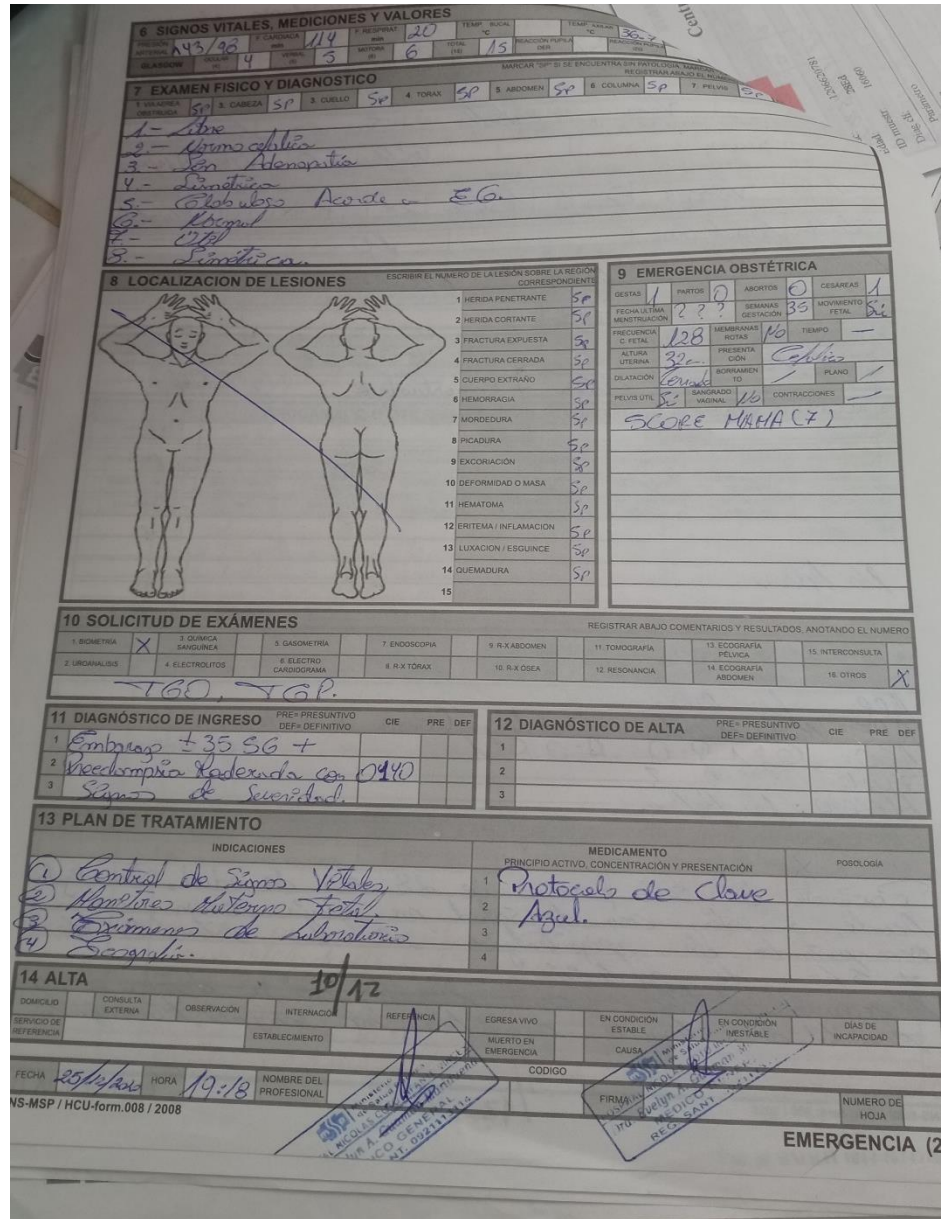 6 SIGNOS VITALES, MEDICIONES Y VALORES
PRESIÓN ARTERIAL 143/98 F. CARDIACA min 114 F. RESPIRAT. min 20 TEMP. BUCAL °C TEMP. AXILAR °C 36.
GLASGOW OCULAR (4) 4 VERBAL (5) 5 MOTORA (6) 6 TOTAL (15) 15 REACCIÓN PUPILA DER REACCIÓN PUPILA
7 EXAMEN FISICO Y DIAGNOSTICO MARCAR "SP" SI SE ENCUENTRA SIN PATOLOGÍA, MARCAR
REGISTRAR ABAJO EL NUMERO
1 VIA AEREA OBSTRUIDA SP 2. CABEZA SP 3. CUELLO SP 4 TORAX SP 5. ABDOMEN SP 6 COLUMNA SP 7. PELVIS SP
1- Libre
2- Normocefálica
3- Sin Adenopatía
4- Simétrico
5- Globuloso Acorde a EG.
6- Normal
7- Útil
8- Simétricas.
8 LOCALIZACION DE LESIONES ESCRIBIR EL NUMERO DE LA LESIÓN SOBRE LA REGIÓN CORRESPONDIENTE
1 HERIDA PENETRANTE SP
2 HERIDA CORTANTE SP
3 FRACTURA EXPUESTA SP
4 FRACTURA CERRADA SP
5 CUERPO EXTRAÑO SP
6 HEMORRAGIA SP
7 MORDEDURA SP
8 PICADURA SP
9 EXCORIACIÓN SP
10 DEFORMIDAD O MASA SP
11 HEMATOMA SP
12 ERITEMA / INFLAMACIÓN SP
13 LUXACION / ESGUINCE SP
14 QUEMADURA SP
15
9 EMERGENCIA OBSTÉTRICA
GESTAS 1 PARTOS 0 ABORTOS 0 CESÁREAS 1
FECHA ULTIMA MENSTRUACIÓN ? ? ? SEMANAS GESTACIÓN 35 MOVIMIENTO FETAL Si
FRECUENCIA C. FETAL 128 MEMBRANAS ROTAS No TIEMPO —
ALTURA UTERINA 32cm PRESENTACIÓN Cefálica
DILATACIÓN Cerrado BORRAMIENTO / PLANO /
PELVIS ÚTIL Si SANGRADO VAGINAL No CONTRACCIONES —
SCORE MAMA (7)
10 SOLICITUD DE EXÁMENES REGISTRAR ABAJO COMENTARIOS Y RESULTADOS, ANOTANDO EL NUMERO
1. BIOMETRÍA X 3. QUIMICA SANGUÍNEA 5. GASOMETRÍA 7. ENDOSCOPIA 9. R-X ABDOMEN 11. TOMOGRAFÍA 13. ECOGRAFÍA PÉLVICA 15. INTERCONSULTA
2. UROANALISIS 4. ELECTROLITOS 6. ELECTRO CARDIOGRAMA 8. R-X TÓRAX 10. R-X ÓSEA 12. RESONANCIA 14. ECOGRAFIA ABDOMEN 16. OTROS X
TGO, TGP.
11 DIAGNÓSTICO DE INGRESO PRE= PRESUNTIVO DEF= DEFINITIVO CIE PRE DEF
1 Embarazo ±35 SG +
2 Preeclampsia Moderada con O140
3 Signos de Severidad.
12 DIAGNÓSTICO DE ALTA PRE= PRESUNTIVO DEF= DEFINITIVO CIE PRE DEF
1
2
3
13 PLAN DE TRATAMIENTO
INDICACIONES
1 Control de Signos Vitales
2 Monitoreo Materno Fetal.
3 Exámenes de Laboratorio
4 Ecografía.
MEDICAMENTO
PRINCIPIO ACTIVO, CONCENTRACIÓN Y PRESENTACIÓN POSOLOGÍA
1 Protocolo de Clave
2 Azul.
3
4
14 ALTA 10/12
DOMICILIO CONSULTA EXTERNA OBSERVACIÓN INTERNACIÓ REFERENCIA EGRESA VIVO EN CONDICIÓN ESTABLE EN CONDICIÓN INESTABLE DÍAS DE INCAPACIDAD
SERVICIO DE REFERENCIA ESTABLECIMIENTO MUERTO EN EMERGENCIA CAUSA
CODIGO
FECHA 25/12/2020 HORA 19:18 NOMBRE DEL PROFESIONAL FIRMA NUMERO DE HOJA
NS-MSP / HCU-form.008 / 2008
EMERGENCIA (2